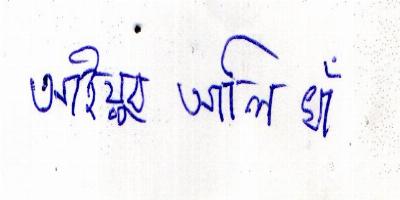 আইয়ুব আলি খাঁ